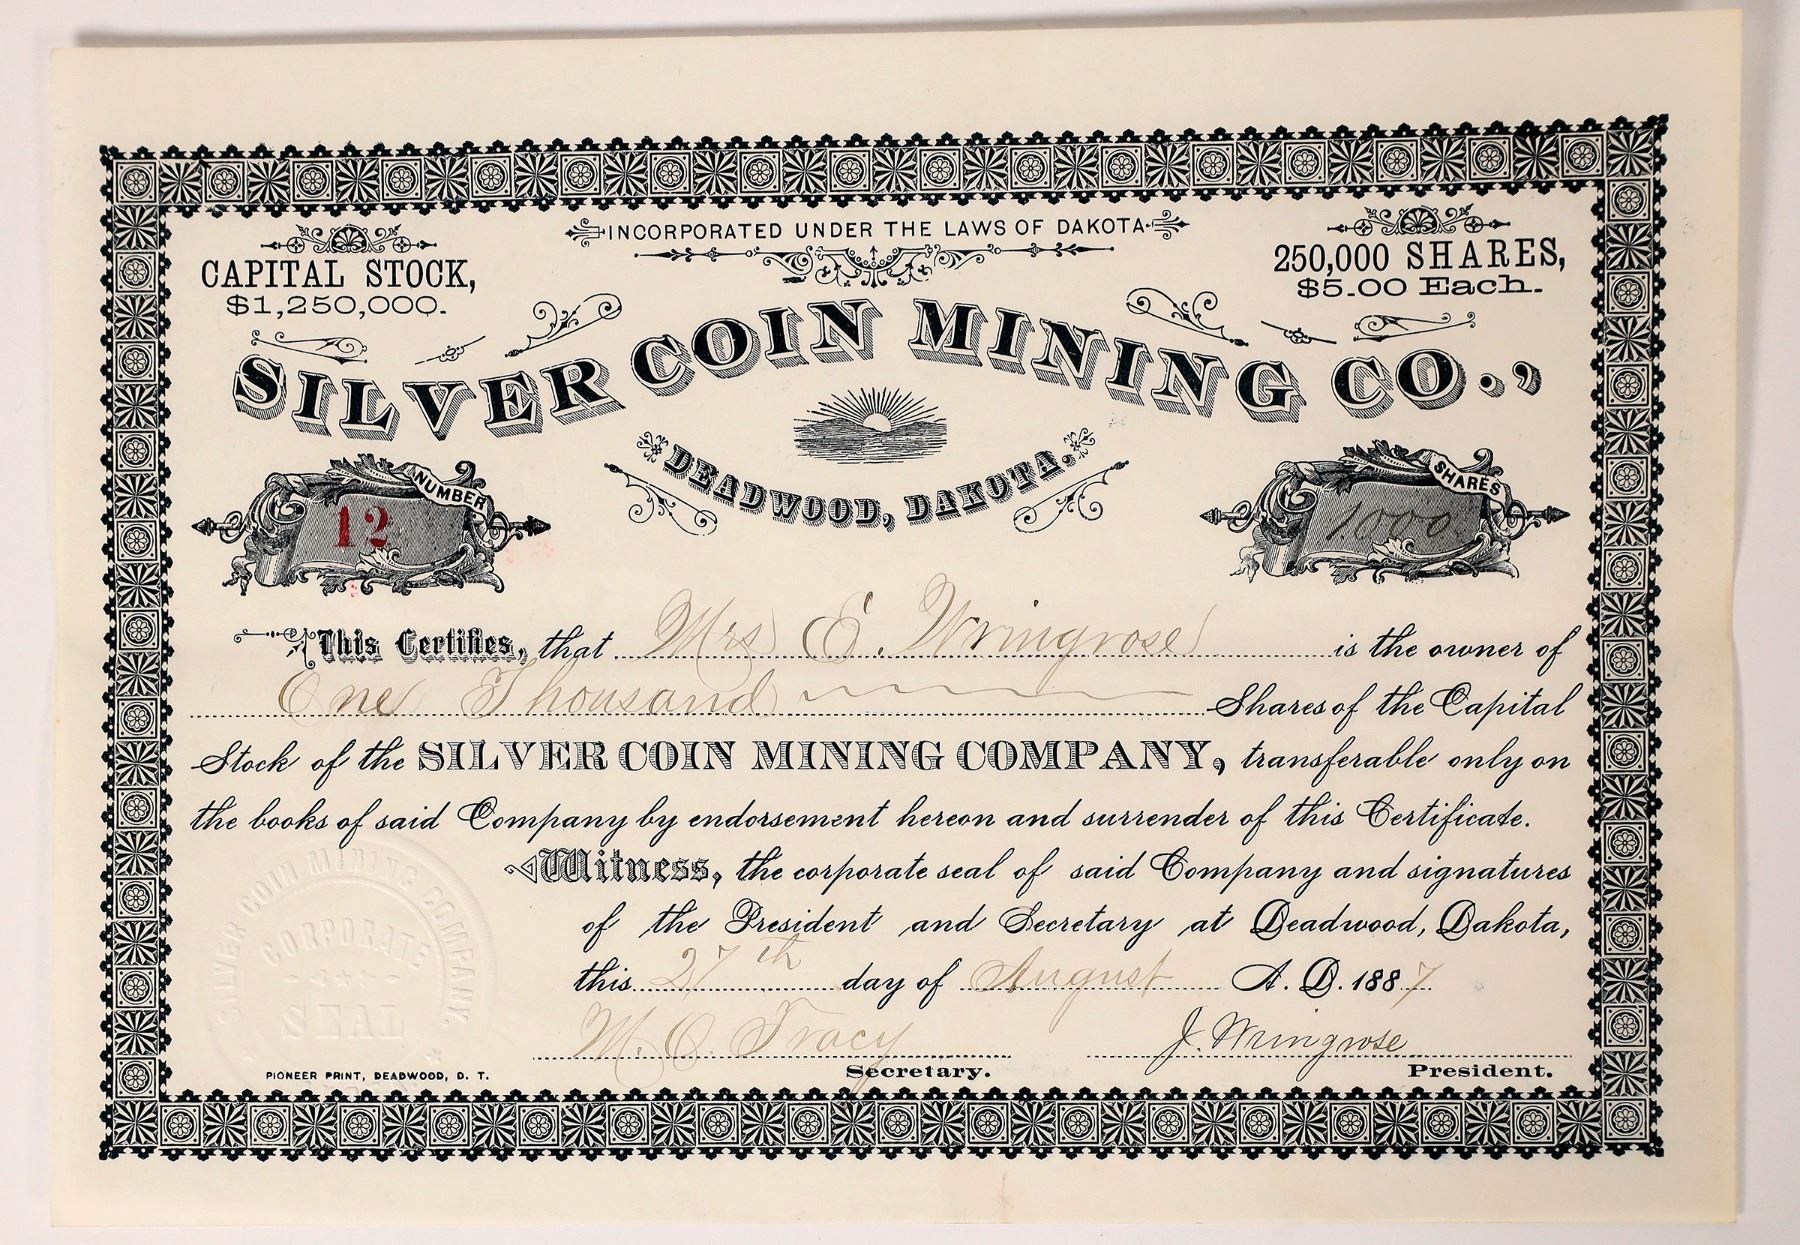 INCORPORATED UNDER THE LAWS OF DAKOTA
CAPITAL STOCK,
$1,250,000.
250,000 SHARES,
$5.00 Each.
SILVER COIN MINING CO.,
DEADWOOD, DAKOTA.
NUMBER
12
SHARES
1000
This Certifies, that Mrs E. Wringrose is the owner of
One Thousand Shares of the Capital
Stock of the SILVER COIN MINING COMPANY, transferable only on
the books of said Company by endorsement hereon and surrender of this Certificate.
Witness, the corporate seal of said Company and signatures
of the President and Secretary at Deadwood, Dakota,
this 27th day of August A. D. 1887
M. C. Tracy
J. Wringrose
Secretary.
President.
SILVER COIN MINING COMPANY.
CORPORATE
SEAL
PIONEER PRINT, DEADWOOD, D. T.